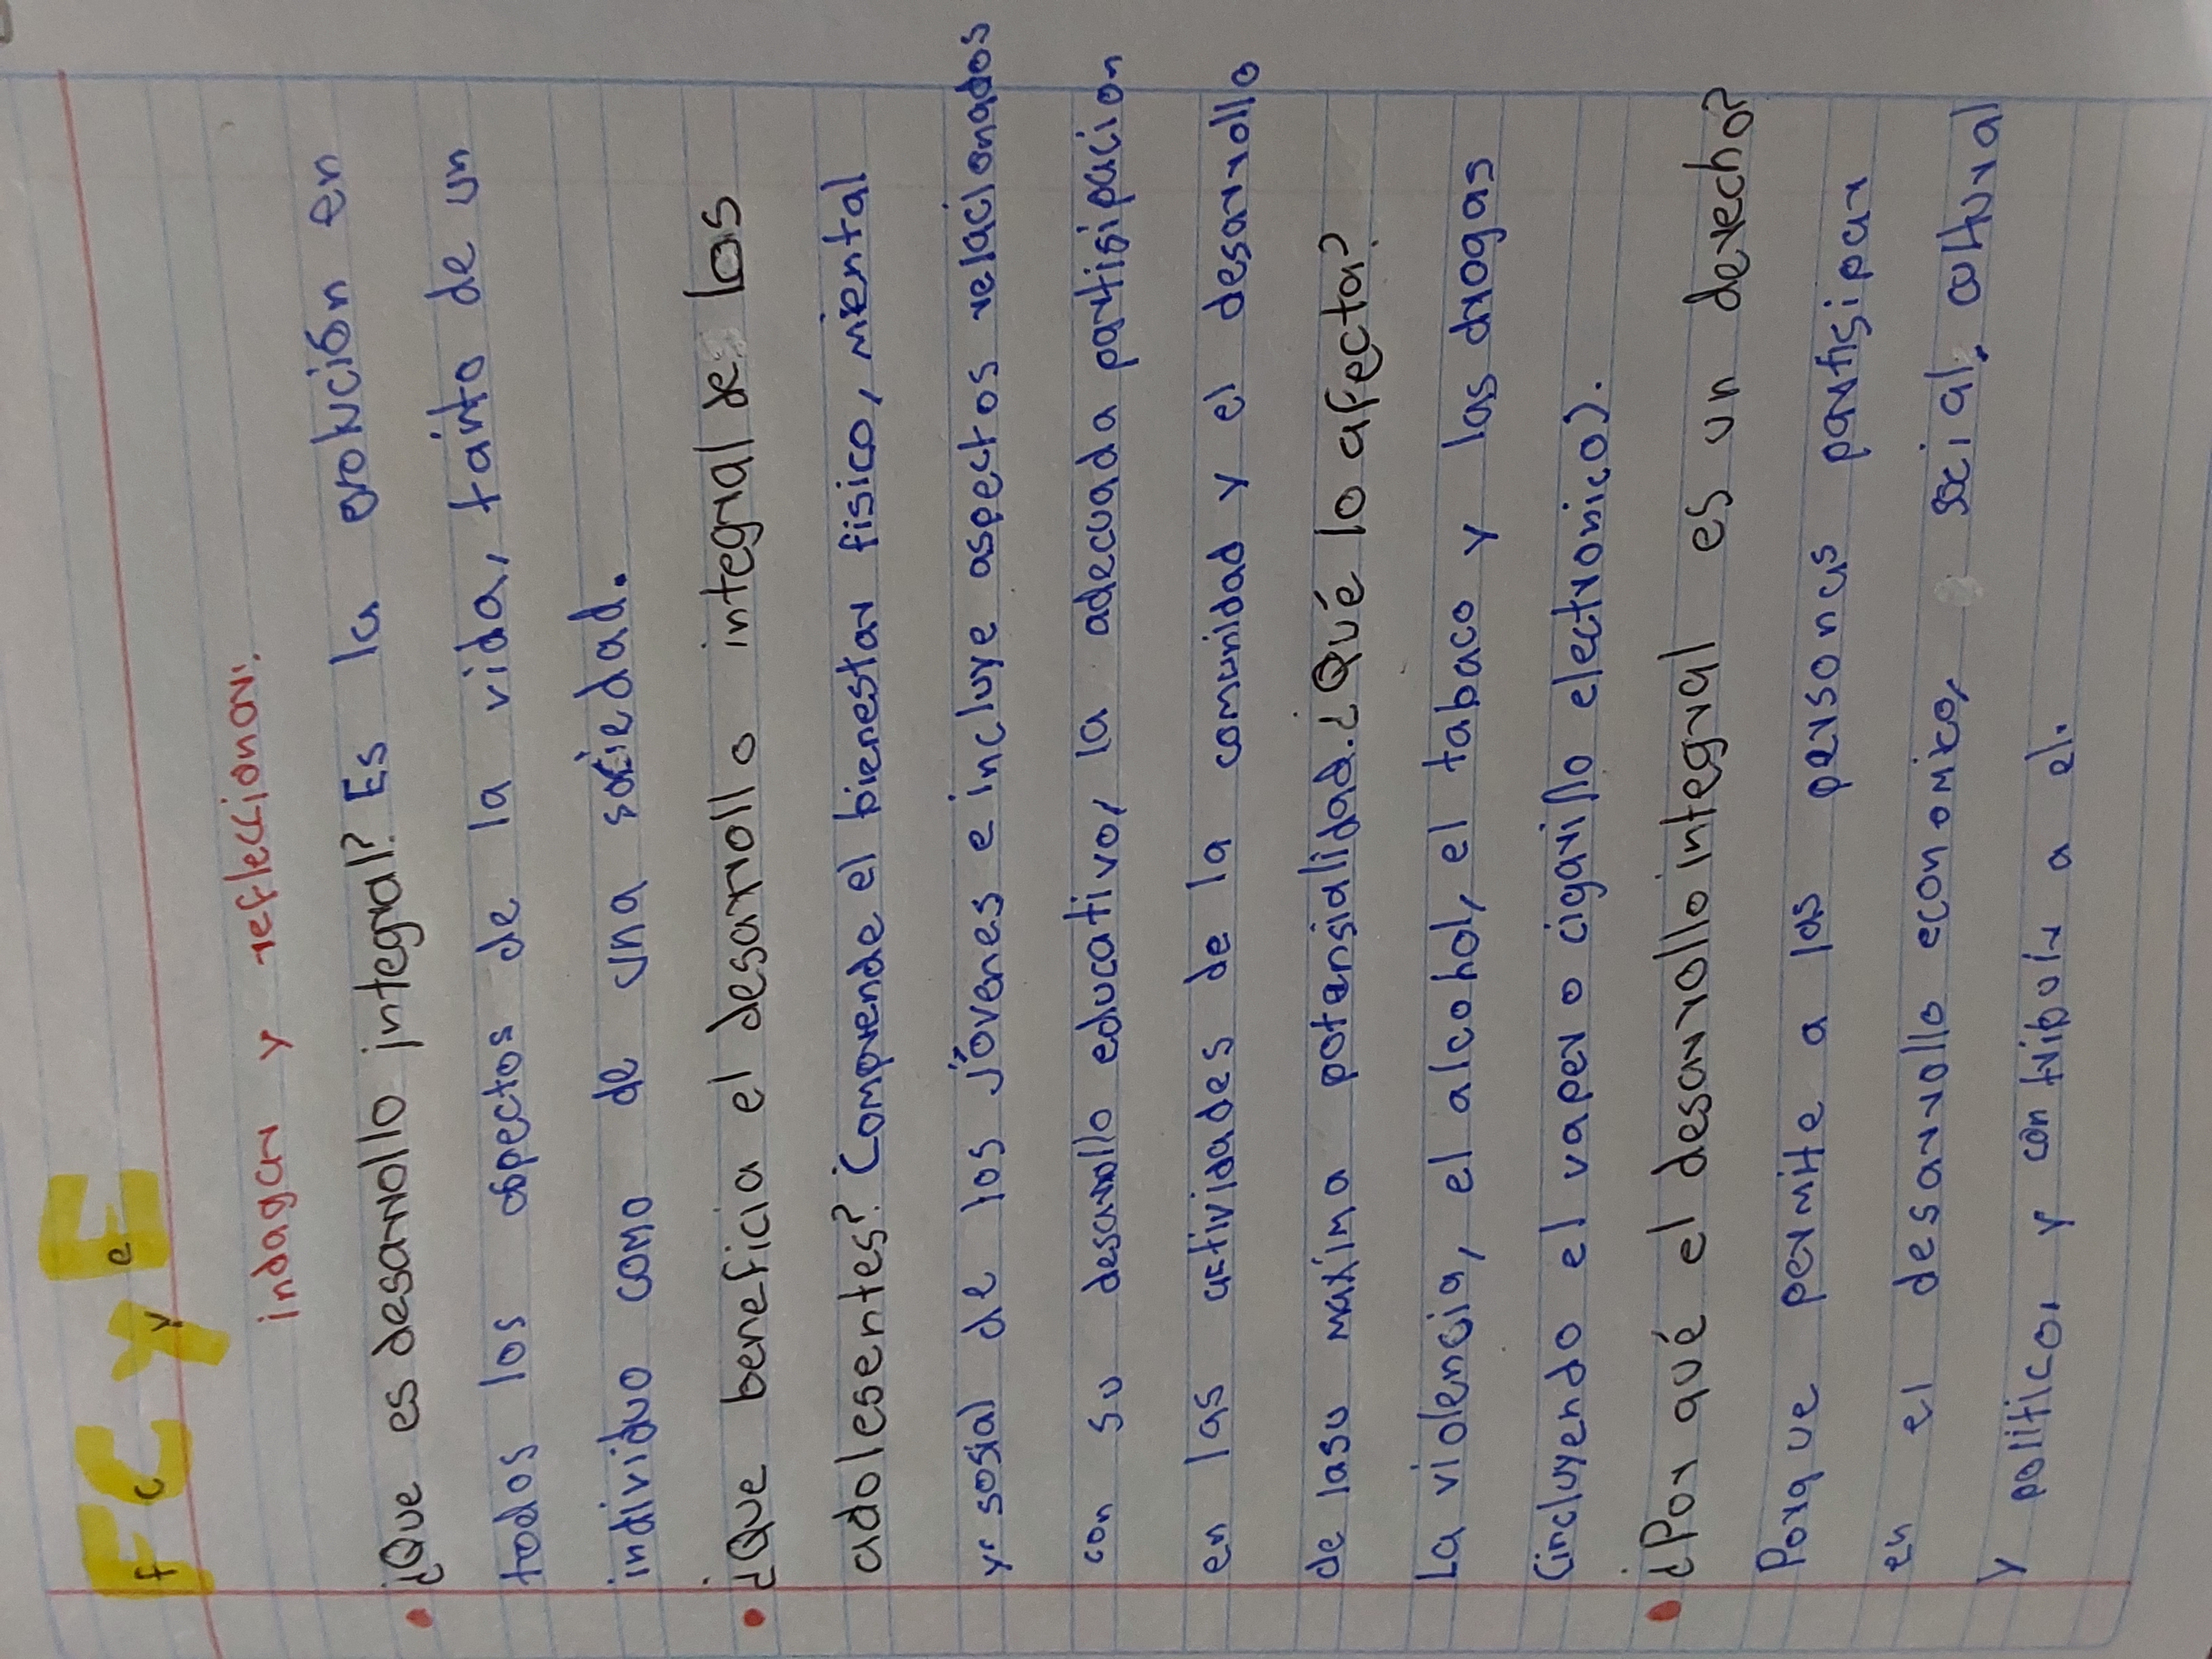 FC y E
indagar y reflexionar.
• ¿Que es desarrollo integral? Es la evolución en
todos los aspectos de la vida, tanto de un
individuo como de una sociedad.
• ¿Que beneficia el desarrollo integral de los
adolesentes? Comprende el bienestar fisico, mental
y sosial de los jóvenes e incluye aspectos relacionados
con su desarrollo educativo, la adecuada partisipacion
en las actividades de la comunidad y el desarrollo
de lasu maxima potensialidad. ¿Qué lo afecta?
La violencia, el alcohol, el tabaco y las drogas
(incluyendo el vaper o cigarillo electronico).
• ¿Por qué el desarrollo integral es un derecho?
Porque permite a las personas partisipar
en el desarrollo economico, social, cultural
y politico, y contribuir a el.